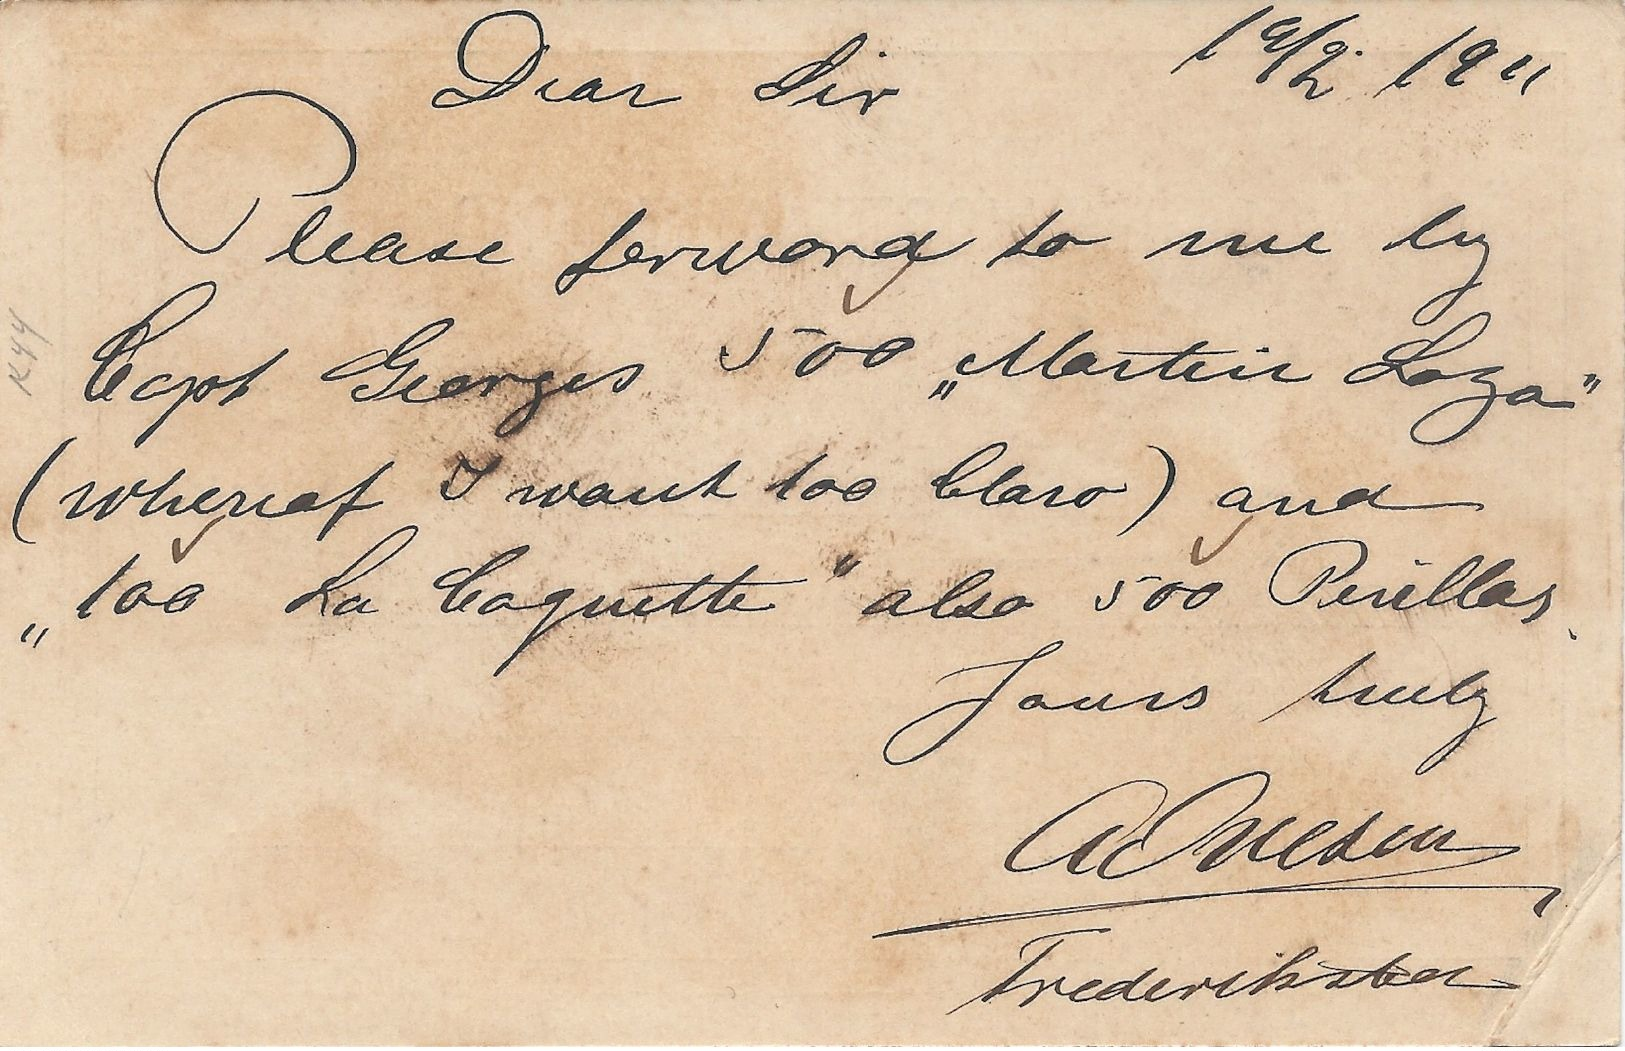 19/2 1911
Dear Sir
Please forward to me by
Capt Georges 500 „Martin Loza"
(whereof I want 100 Claro) and
„100 La Coquette" also 500 Perillas.
Yours truly
Frederiksted
K44